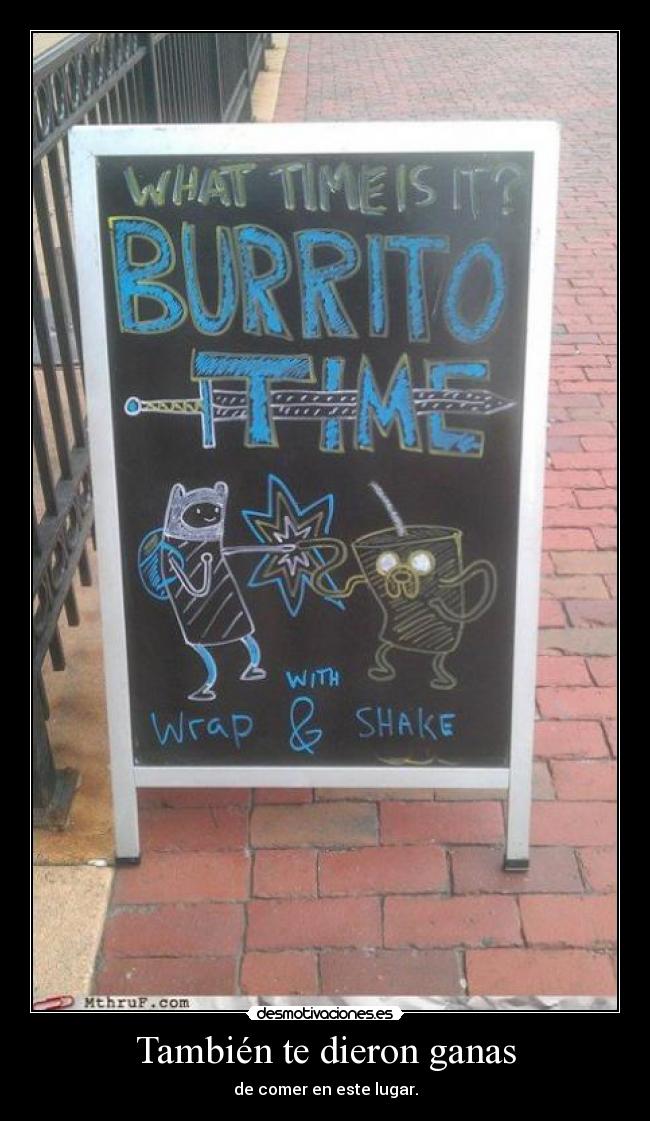 WHAT TIME IS IT?
BURRITO
TIME
WITH
Wrap & SHAKE
MthruF.com
desmotivaciones.es
También te dieron ganas
de comer en este lugar.